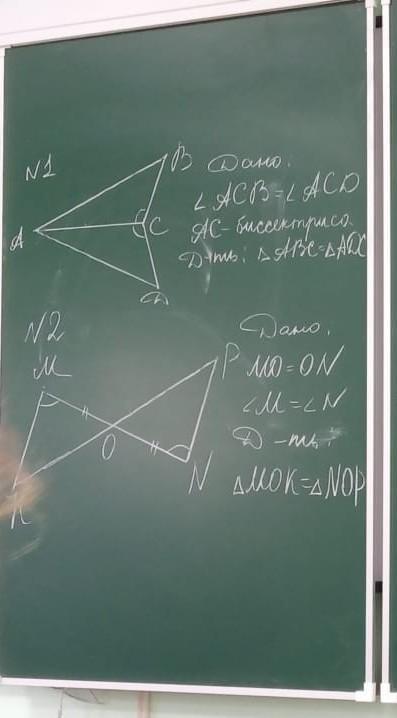 N1
B
A
C
D
Дано:
∠ACB=∠ACD
AC-биссектриса
Д-ть: △ABC=△ADC
N2
M
P
O
N
K
Дано:
MO=ON
∠M=∠N
Д-ть:
△MOK=△NOP